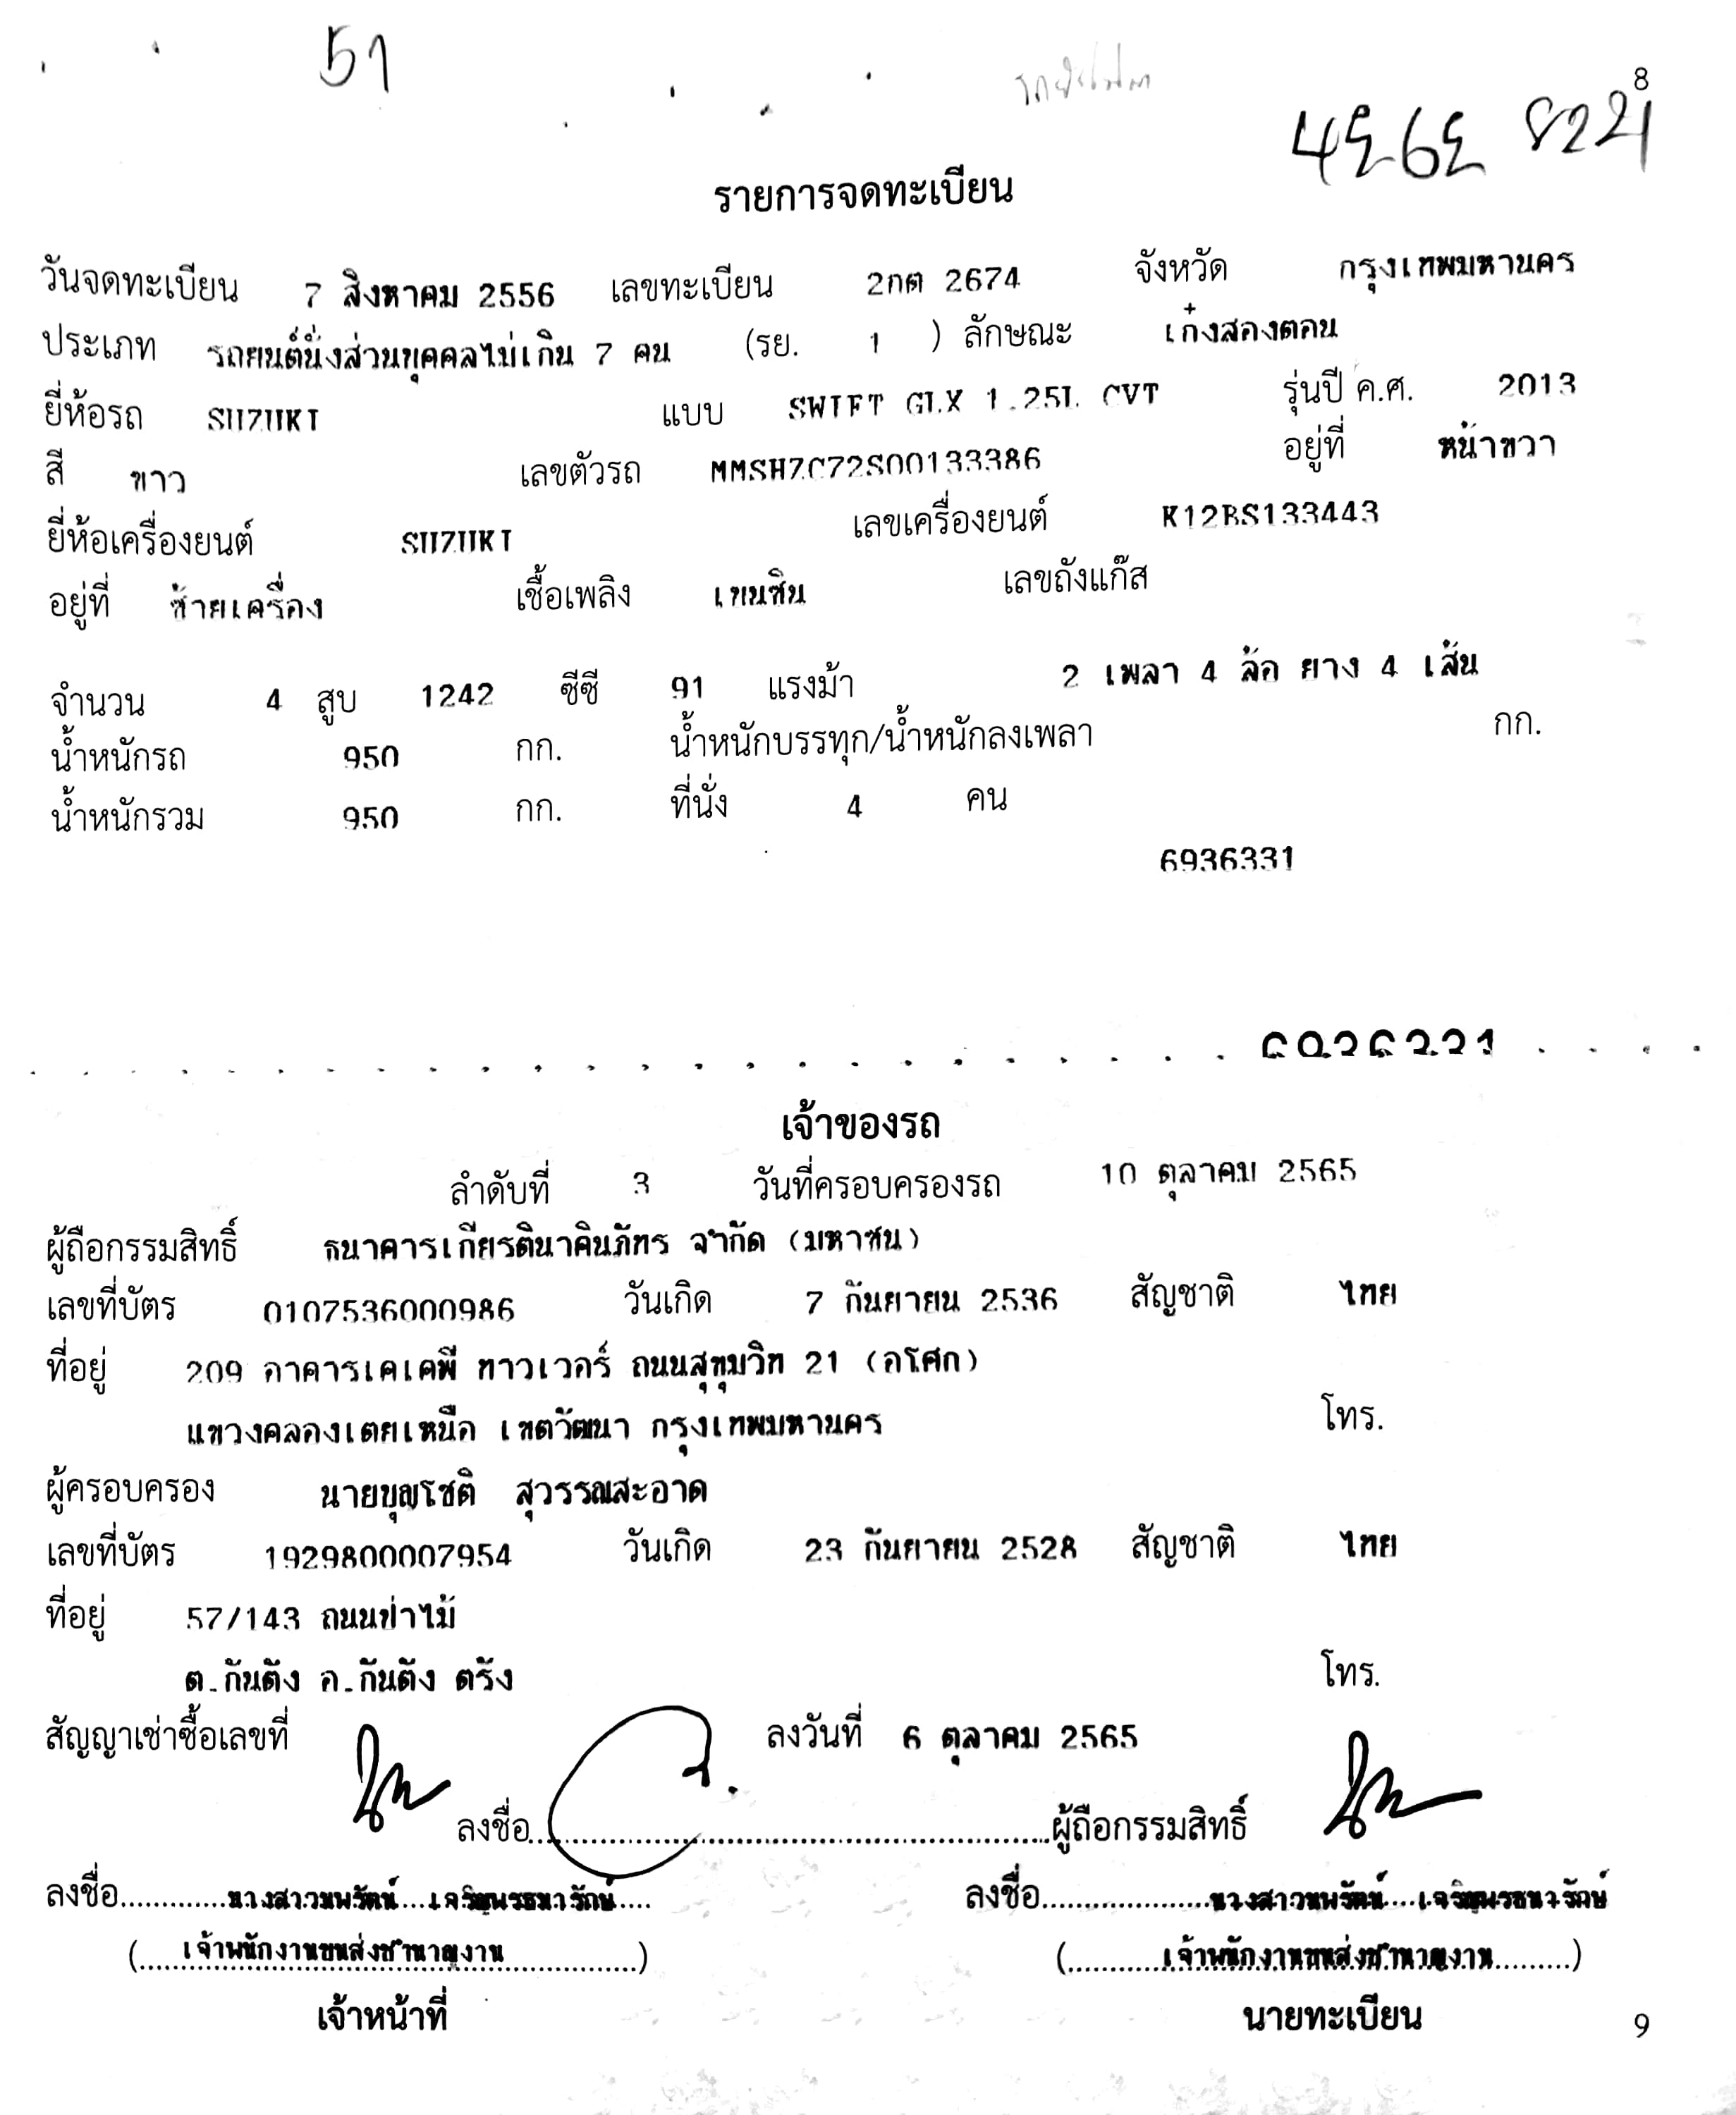 51
8
รายการจดทะเบียน
วันจดทะเบียน 7 สิงหาคม 2556 เลขทะเบียน 2กศ 2674 จังหวัด กรุงเทพมหานคร
ประเภท รถยนต์นั่งส่วนบุคคลไม่เกิน 7 คน (รย. 1 ) ลักษณะ เก๋งสองตอน
ยี่ห้อรถ SUZUKI แบบ SWIFT GLX 1.25L CVT รุ่นปี ค.ศ. 2013
สี ขาว เลขตัวรถ MMSHZC72S00133386 อยู่ที่ หน้าขวา
ยี่ห้อเครื่องยนต์ SUZUKI เลขเครื่องยนต์ K12BS133443
อยู่ที่ ซ้ายเครื่อง เชื้อเพลิง เบนซิน เลขถังแก๊ส
จำนวน 4 สูบ 1242 ซีซี 91 แรงม้า 2 เพลา 4 ล้อ ยาง 4 เส้น
น้ำหนักรถ 950 กก. น้ำหนักบรรทุก/น้ำหนักลงเพลา กก.
น้ำหนักรวม 950 กก. ที่นั่ง 4 คน
6936331
6936331
เจ้าของรถ
ลำดับที่ 3 วันที่ครอบครองรถ 10 ตุลาคม 2565
ผู้ถือกรรมสิทธิ์ ธนาคารเกียรตินาคินภัทร จำกัด (มหาชน)
เลขที่บัตร 0107536000986 วันเกิด 7 กันยายน 2536 สัญชาติ ไทย
ที่อยู่ 209 อาคารเคเคพี ทาวเวอร์ ถนนสุขุมวิท 21 (อโศก)
แขวงคลองเตยเหนือ เขตวัฒนา กรุงเทพมหานคร โทร.
ผู้ครอบครอง นายบุญโชติ สุวรรณสะอาด
เลขที่บัตร 1929800007954 วันเกิด 23 กันยายน 2528 สัญชาติ ไทย
ที่อยู่ 57/143 ถนนป่าไม้
ต.กันตัง อ.กันตัง ตรัง โทร.
สัญญาเช่าซื้อเลขที่ ลงวันที่ 6 ตุลาคม 2565
ลงชื่อ ผู้ถือกรรมสิทธิ์
ลงชื่อ นางสาวนพรัตน์ ลงชื่อ นางสาวนพรัตน์
(เจ้าพนักงานขนส่งชำนาญงาน) (เจ้าพนักงานขนส่งชำนาญงาน)
เจ้าหน้าที่ นายทะเบียน
9